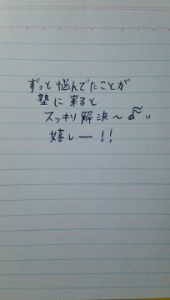 ずっと悩んでたことが
塾に来ると
スッキリ解決〜♬!!
嬉しー!!